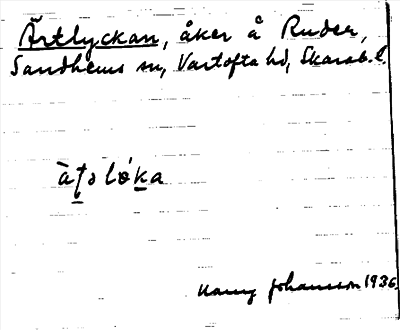 Ärtlyckan, åker å Ruder,
Sandhems sn, Vartofta hd, Skarab. l.
Harry Johansson 1936.